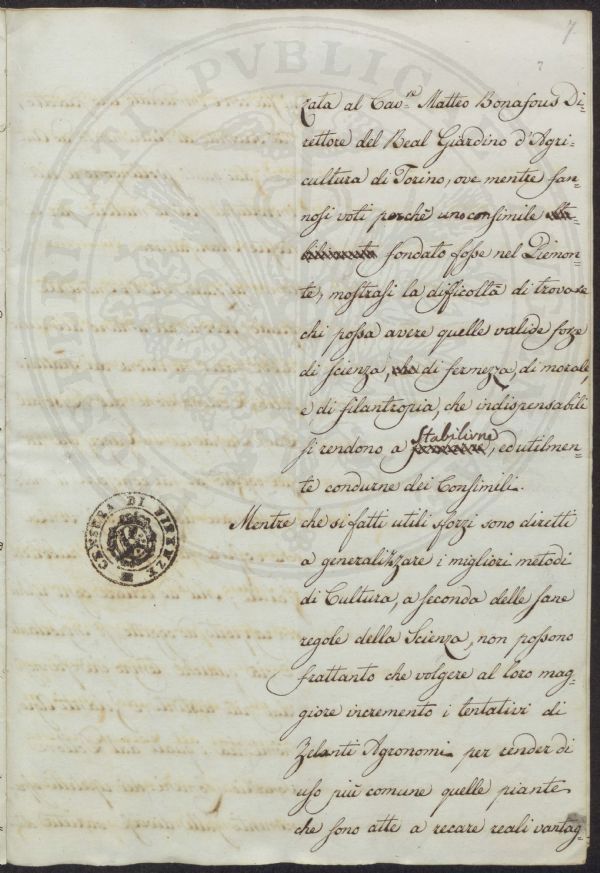 7
zata al Cav.re Matteo Bonafous Di=
rettore del Real Giardino d'Agri=
cultura di Torino, ove mentre fan=
nosi voti perchè uno consimile
fondato fosse nel Piemon=
te, mostrasi la difficoltà di trovare
chi possa avere quelle valide forze
di scienza, di fermezza, di morale,
e di filantropia, che indispensabili
si rendono a stabilirne, ed utilmen=
te condurne dei Consimili.
Mentre che sì fatti utili sforzi sono diretti
a generalizzare i migliori metodi
di Cultura, a seconda delle sane
regole della Scienza, non possono
frattanto che volgere al loro mag=
giore incremento i tentativi di
Zelanti Agronomi per render di
uso più comune quelle piante
che sono atte a recare reali vantag=
CENSURA DI FIRENZE